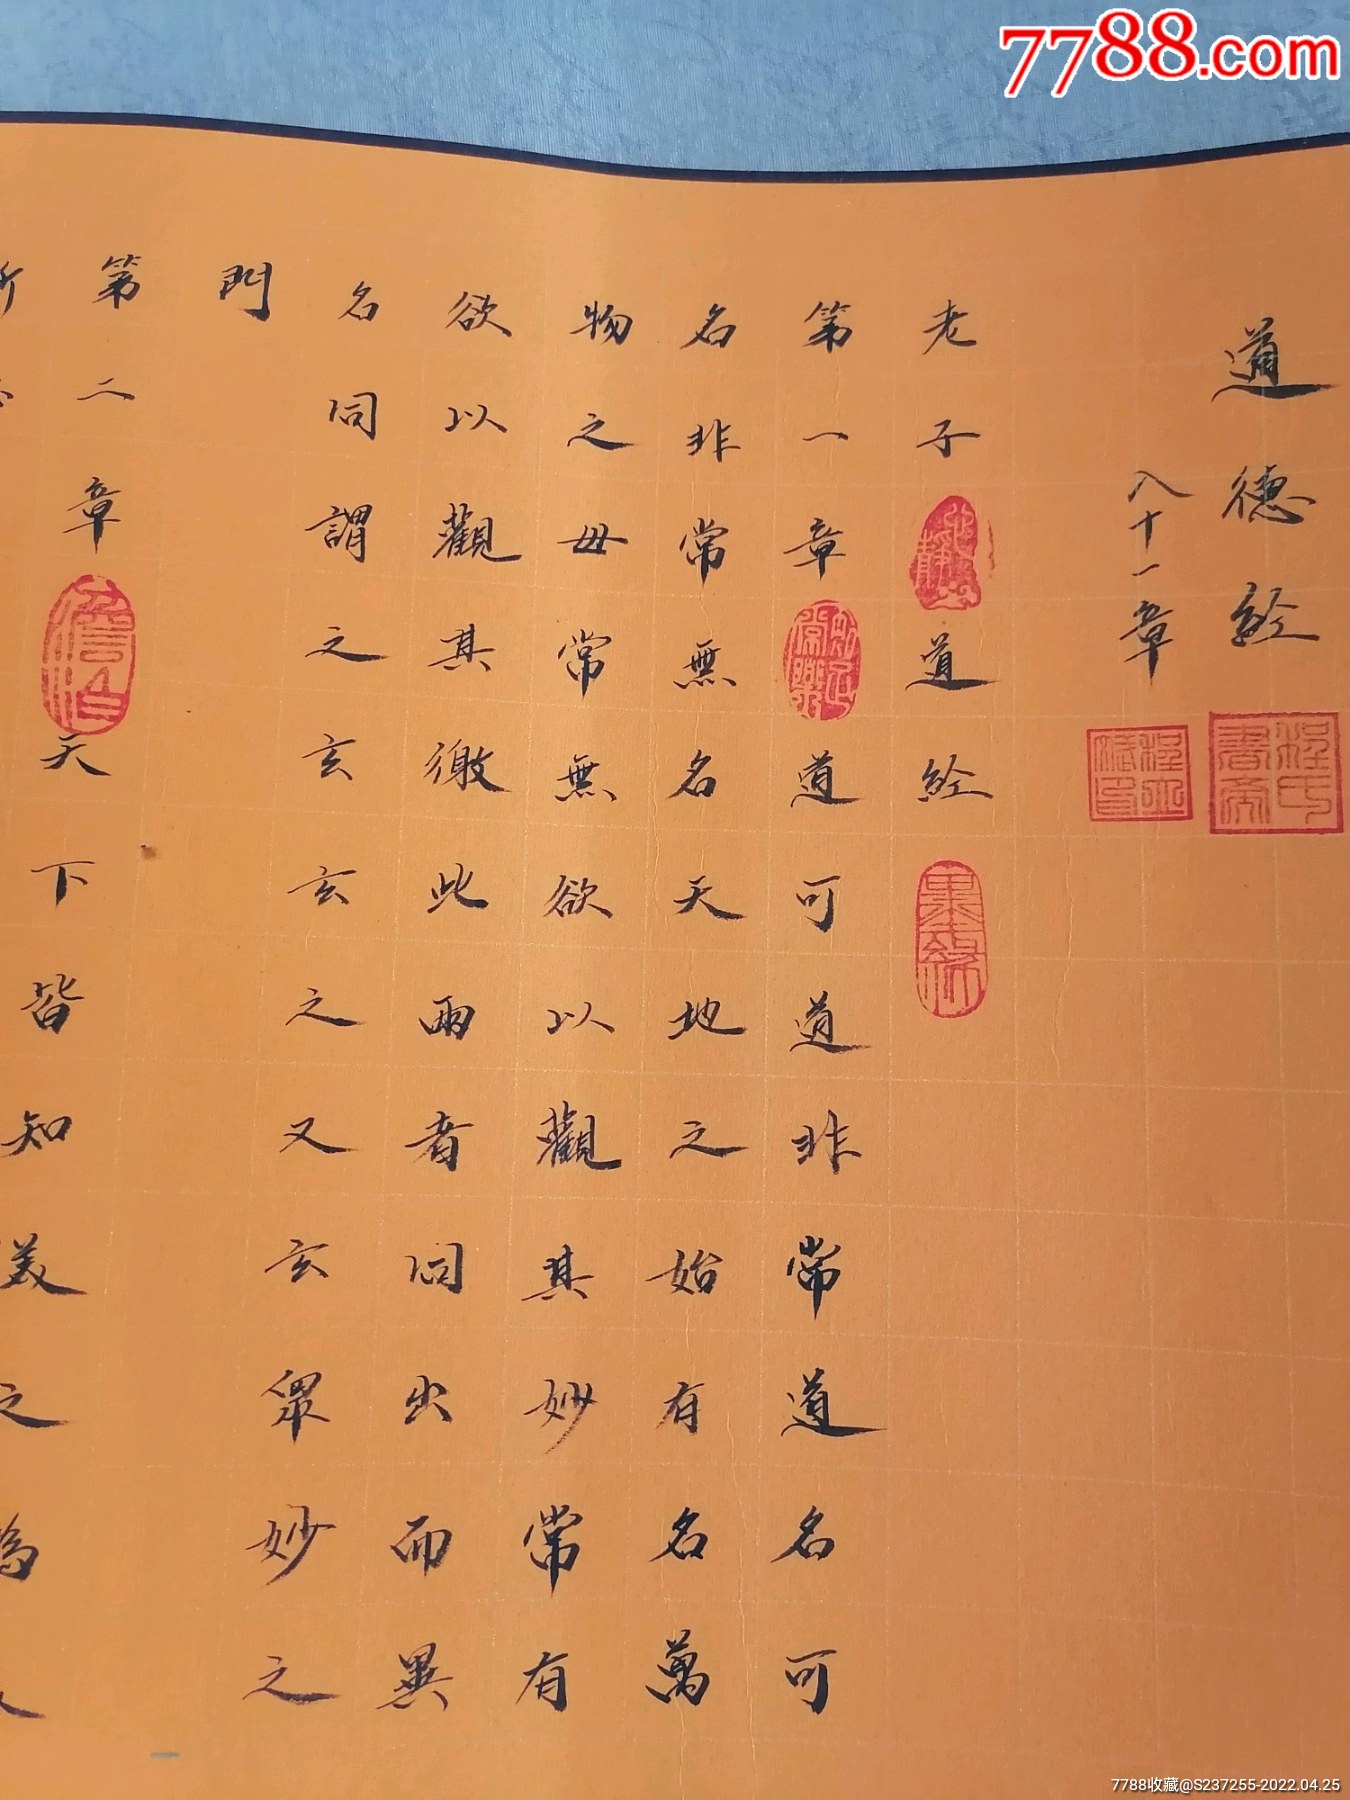 7788.com
道德經
程氏書齋
八十一章
老子
道經
墨緣
第一章
知足常樂
道可道非常道名可
名非常無名天地之始有名萬
物之母常無欲以觀其妙常有
欲以觀其徼此兩者同出而異
名同謂之玄玄之又玄眾妙之
門
第二章
天下皆知美之為
7788收藏@S237255-2022.04.25